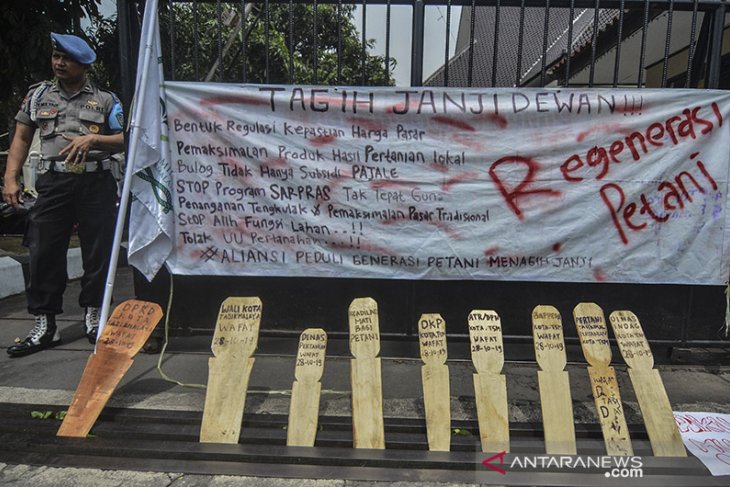 TAGIH JANJI DEWAN !!!
Bentuk Regulasi Kepastian Harga Pasar
Pemaksimalan Produk Hasil Pertanian lokal
Bulog Tidak Hanya Subsidi PAJALE
STOP Program SAPRPRAS Tak Tepat Guna
Penanganan Tengkulak & Pemaksimalan Pasar Tradisional
STOP Alih Fungsi Lahan...!!
Tolak UU Pertanahan...!!
ALIANSI PEDULI GENERASI PETANI MENAGIH JANJI
Regenerasi
Petani
DPRD
KOTA
TASIKMALAYA
WAFAT
28-10-19
WALI KOTA
TASIKMALAYA
WAFAT
28-10-19
DINAS
PERTANIAN
WAFAT
28-10-19
KEADILAN
MATI
BAGI
PETANI
DKP
KOTA TSM
WAFAT
28-10-19
ATR/BPN
KOTA TSM
WAFAT
28-10-19
BAPPEDA
KOTA TSM
WAFAT
28-10-19
PERTANI
WAFAT
DINAS
KOTA TSM
WAFAT
28-10-19
ANTARANEWS
.com